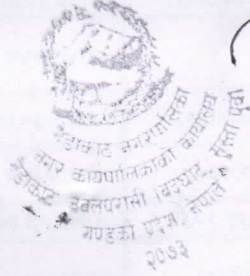 गैंडाकोट नगरपालिका
नगर कार्यपालिकाको कार्यालय
गैंडाकोट नवलपरासी (बर्दघाट सुस्ता पूर्व)
गण्डकी प्रदेश, नेपाल
२०७३